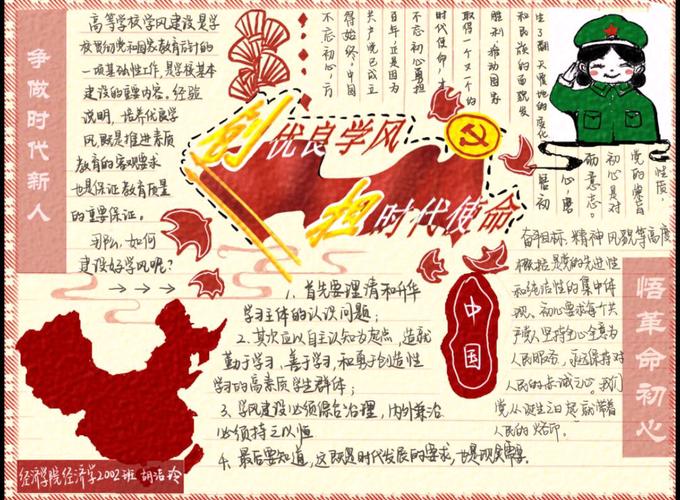 争做时代新人
高等学校学风建设是学
校贯彻党和国家教育方针的
一项基础性工作,是学校基本
建设的重要内容。经验
说明,培养优良学
风既是推进素质
教育的客观要求
也是保证教育质量
的重要保证。
那么,如何
建设好学风呢?
→→→
创优良学风
担时代使命
生了翻天覆地的变化
和民族的面貌发
胜利推动国家
取得一个又一个的
时代使命,才
不忘初心勇担
百年,正是因为
共产党已成立
得始终。中国
不忘初心,方
性质,
党的宗旨
初心是对
而意志。
心,磨
悟初
奋斗目标、精神风貌等高度
概括是党的先进性
和纯洁性的集中体
现。初心要求每个共
产党人坚持全心全意为
人民服务,永远保持对
人民的赤诚之心。我们
党从诞生之日起,就带着
人民的烙印。
悟革命初心
中国
1、首先要理清和升华
学习主体的认识问题;
2、其次应以自主认知为起点,造就
勤于学习、善于学习、和勇于创造性
学习的高素质学生群体;
3、学风建设必须综合治理,内外兼治
必须持之以恒
4、最后要知道,这既是时代发展的要求,也是现实需要
经济学院经济学2002班 胡洁玲